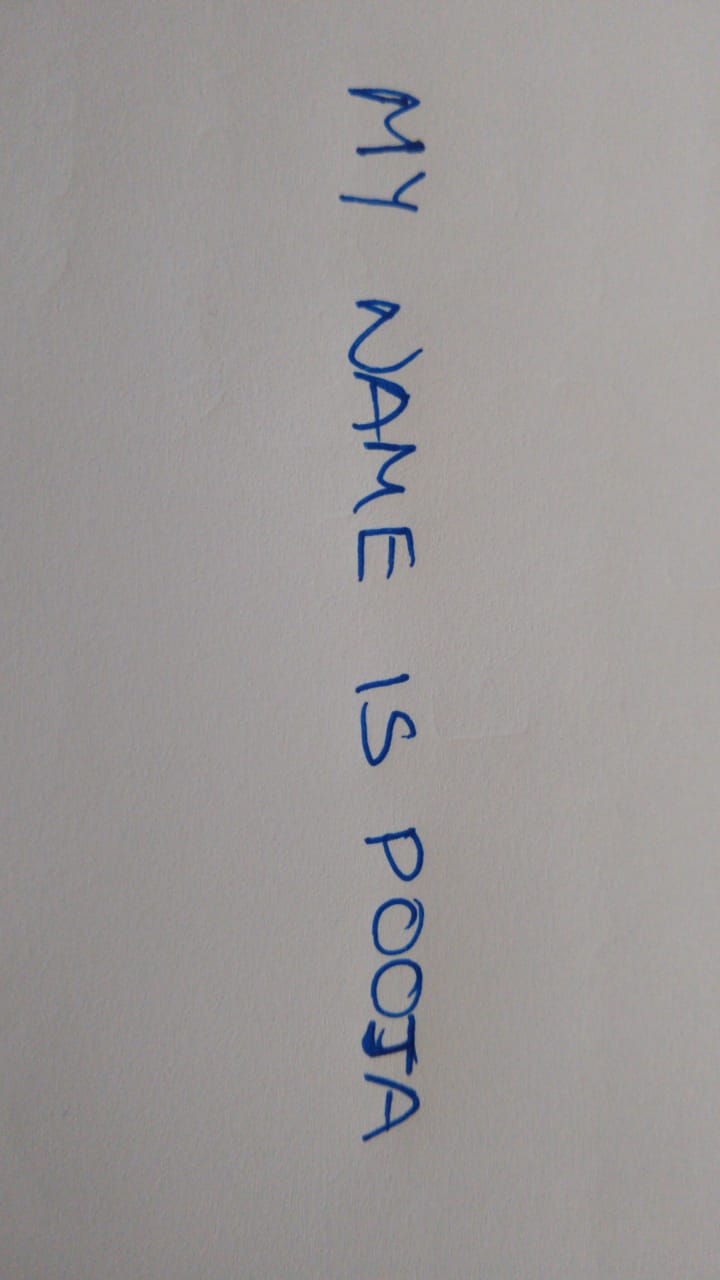 MY NAME IS POOJA